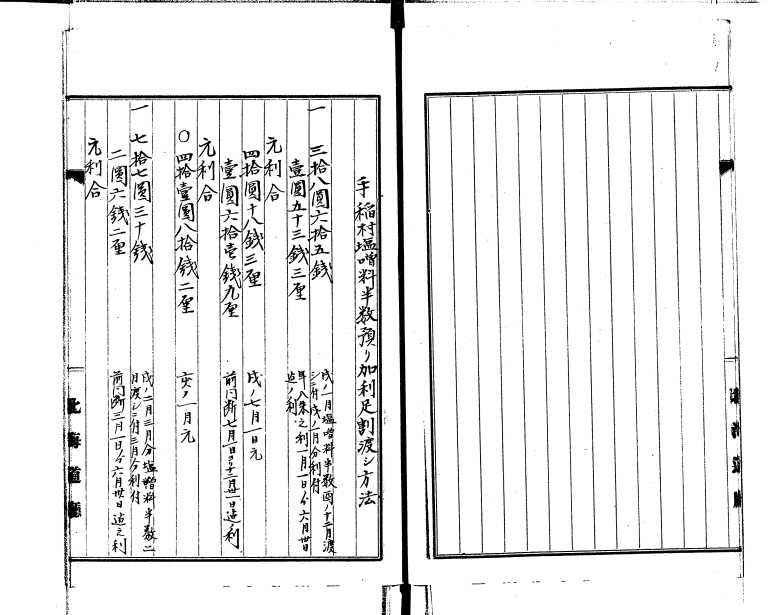 手稲村塩噌料半数預リ加利足割渡シ方法
一 三拾八圓六拾五錢
戌ノ一月塩噌料半数酉ノ十二月渡
シニ付戌ノ一月分利付
壹圓五十三錢三厘
年八朱之利一月一日ゟ六月卅日
迄ノ利
元利合
四拾圓十八錢三厘
戌ノ七月一日元
壹圓六拾壱錢九厘
前同断七月一日ゟ十二月卅一日迄ノ利
元利合
〇四拾壹圓八拾錢二厘
亥ノ一月元
一 七拾七圓三十錢
戌ノ二月三月分塩噌料半数二
月渡シニ付三月分利付
二圓六錢二厘
前同断三月一日ゟ六月卅日迄之利
元利合
北海道廳